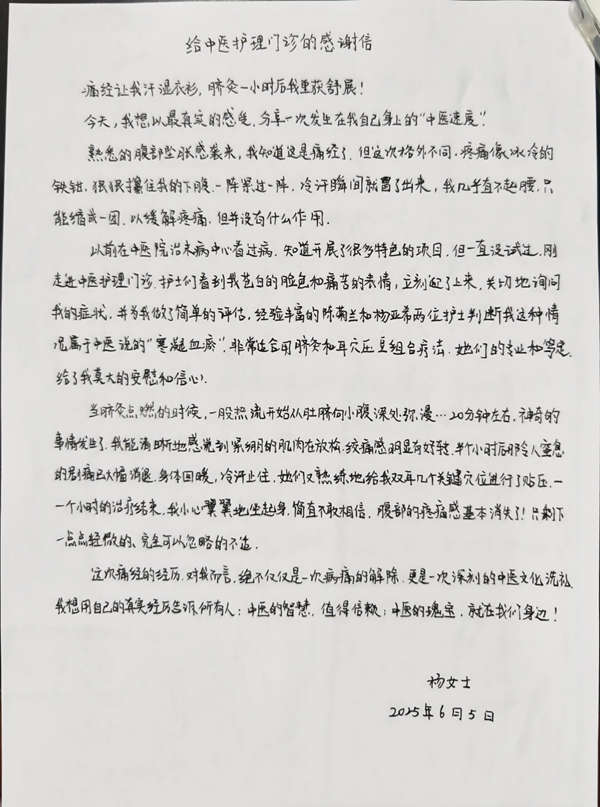 给中医护理门诊的感谢信
痛经让我汗湿衣衫，脐灸一小时后我重获舒展！
今天，我想以最真实的感受，分享一次发生在我自己身上的“中医速度”！
熟悉的腹部坠胀感袭来，我知道这是痛经了，但这次格外不同，疼痛像冰冷的
铁钳，狠狠攥住我的下腹，一阵紧过一阵，冷汗瞬间就冒了出来，我几乎直不起腰，只
能缩成一团，以缓解疼痛，但并没有什么作用。
以前在中医院治未病中心看过病，知道开展了很多特色的项目，但一直没试过，刚
走进中医护理门诊，护士们看到我苍白的脸色和痛苦的表情，立刻迎了上来，关切地询问
我的症状，并为我做了简单的评估，经验丰富的陈菊兰和杨亚希两位护士判断我这种情
况属于中医说的“寒凝血瘀”，非常适合用脐灸和耳穴压豆组合疗法，她们的专业和笃定，
给了我莫大的安慰和信心！
当脐灸点燃的时候，一股热流开始从肚脐向小腹深处弥漫…20分钟左右，神奇的
事情发生了，我能清晰地感觉到紧绷的肌肉在放松，绞痛感明显有好转，半个小时后那令人窒息
的剧痛已大幅消退，身体回暖，冷汗止住，她们又熟练地给我双耳几个关键穴位进行了贴压，一
一个小时的治疗结束，我小心翼翼地坐起身，简直不敢相信，腹部的疼痛感基本消失了！只剩下
一点点轻微的、完全可以忽略的不适。
这次痛经的经历，对我而言，绝不仅仅是一次病痛的解除，更是一次深刻的中医文化洗礼，
我想用自己的真实经历告诉所有人：中医的智慧，值得信赖；中医的瑰宝，就在我们身边！
杨女士
2025年6月5日